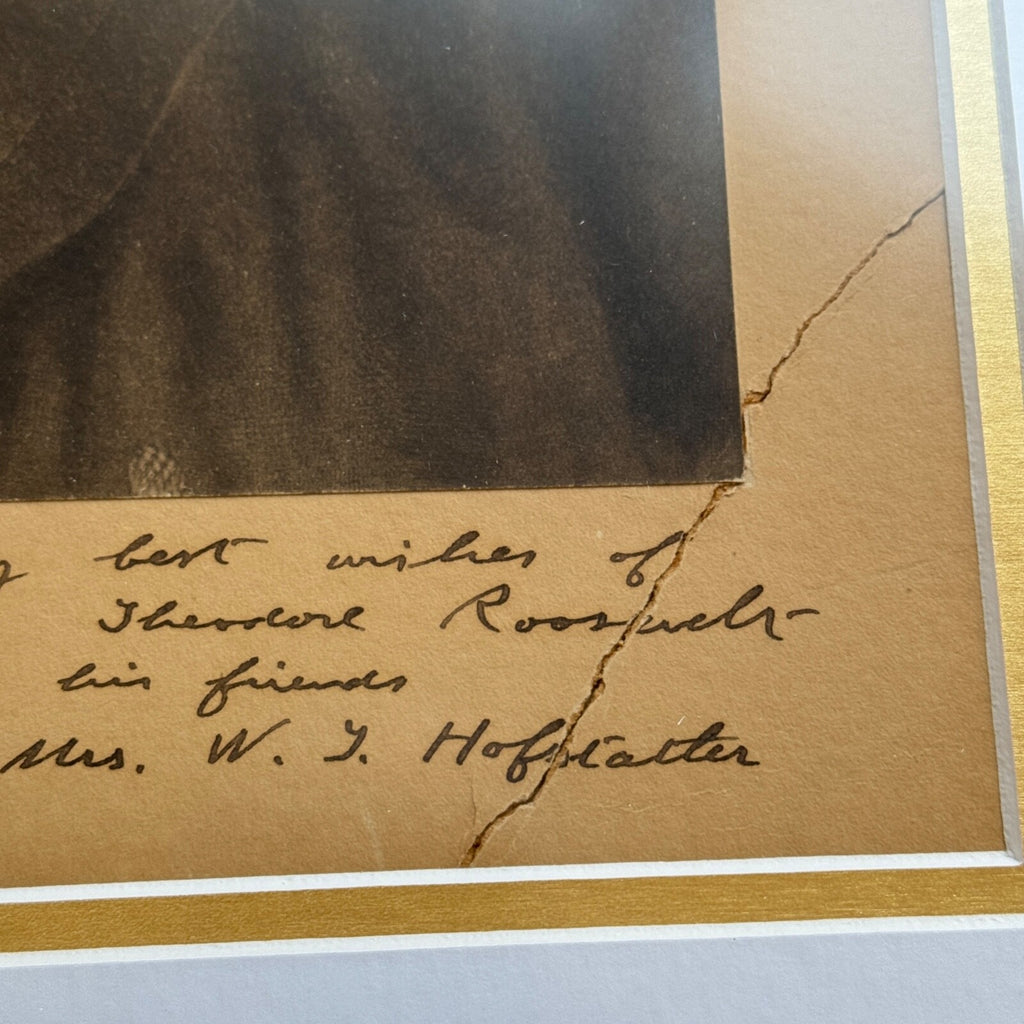 best wishes of
Theodore Roosevelt
his friends
Mrs. W. J. Hofstatter